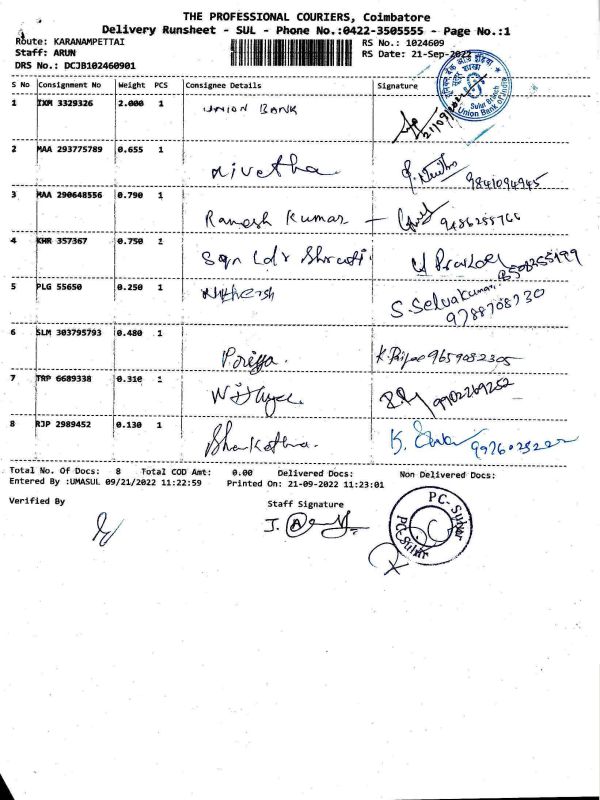 THE PROFESSIONAL COURIERS, Coimbatore
Delivery Runsheet - SUL - Phone No.:0422-3505555 - Page No.:1
Route: KARANAMPETTAI RS No.: 1024609
Staff: ARUN RS Date: 21-Sep-2022
DRS No.: DCJB102460901
S No Consignment No Weight PCS Consignee Details Signature
1 IXM 3329326 2.000 1 UNION BANK 21/09/2022
Sulur Branch
Union Bank of India
2 MAA 293775789 0.655 1 Nivetha 9841094945
3 MAA 290648556 0.790 1 Ramesh Kumar - 9486255766
4 KHR 357367 0.750 1 Sqn Ldr
5 PLG 55650 0.250 1 S. Selvakumar.
9788708730
6 SLM 303795793 0.480 1 Priya. K. Priya 9659082305
7 TRP 6689338 0.310 1
8 RJP 2989452 0.130 1 K.
Total No. Of Docs: 8 Total COD Amt: 0.00 Delivered Docs: Non Delivered Docs:
Entered By :UMASUL 09/21/2022 11:22:59 Printed On: 21-09-2022 11:23:01
Verified By Staff Signature
PC-Sulur
PC-Sulur